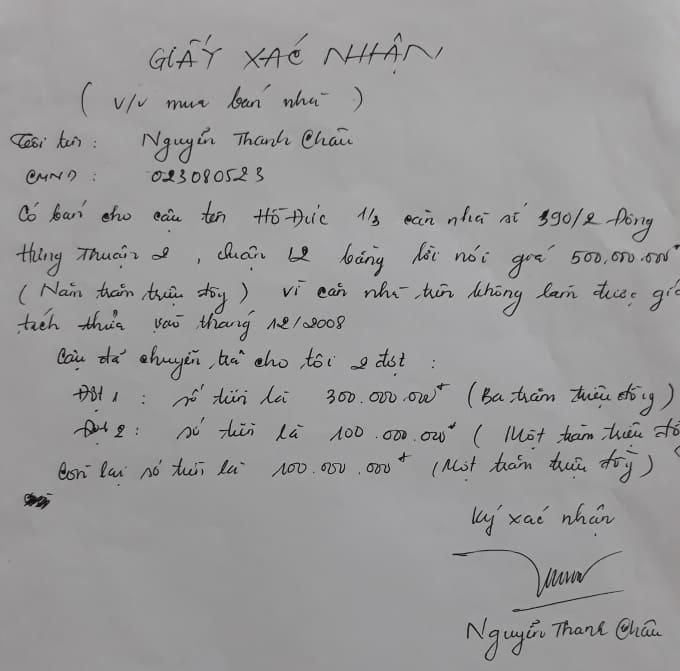 GIẤY XÁC NHẬN
( v/v mua bán nhà )
Tôi tên : Nguyễn Thanh Châu
CMND : 023080523
Có bán cho cậu tên Hồ Đức 1/3 căn nhà số 390/2 Đông
Hưng Thuận 2 , Quận 12 bằng lời nói giá 500.000.000đ
( Năm trăm triệu đồng ) vì căn nhà trên không làm được giấ
tách thửa vào tháng 12/2008
Cậu đã chuyển trả cho tôi 2 đợt :
Đợt 1 : số tiền là 300.000.000đ ( Ba trăm triệu đồng )
Đợt 2 : số tiền là 100.000.000đ ( Một trăm triệu đồ
Còn lại số tiền là 100.000.000đ (Một trăm triệu đồng )
Ký xác nhận
Nguyễn Thanh Châu